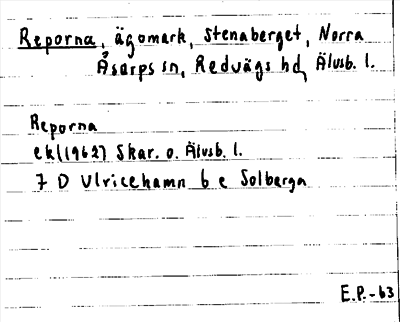 Reporna, ägomark, Stenaberget, Norra
Åsarps sn, Redvägs hd, Älvsb. l.
Reporna
ek1(1962) Skar. o. Älvsb. l.
7 D Ulricehamn b e Solberga
E.P.-63